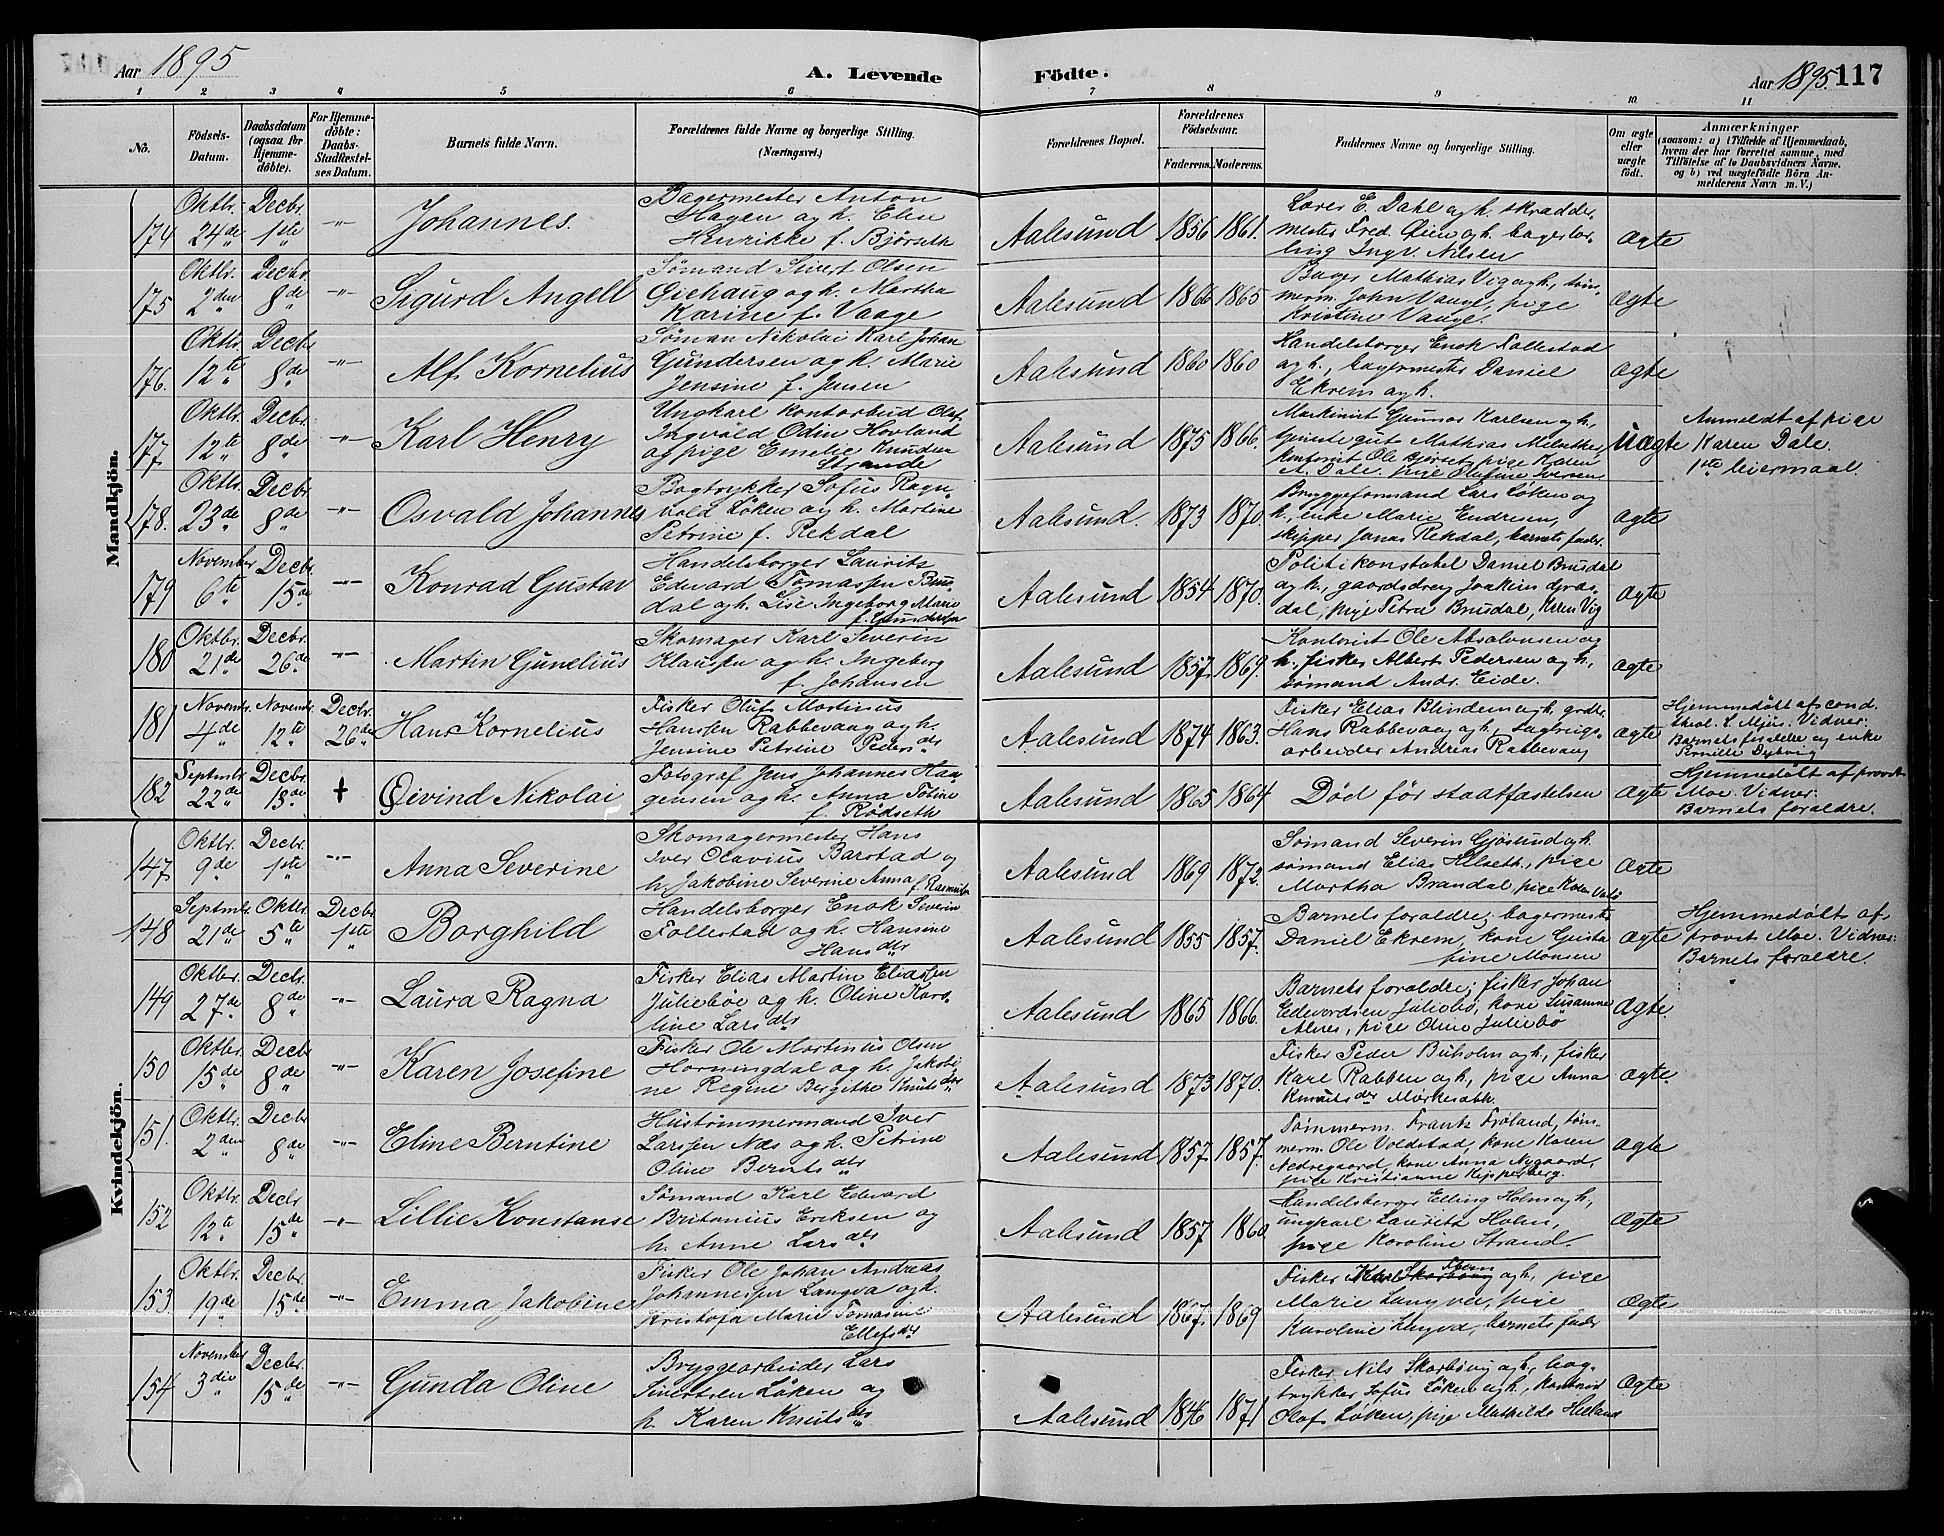 Aar 1895
A. Levende
Födte.
Aar 1895.
117
1 2 3 4 5 6 7 8 9 10 11
No.
Födsels-
Datum.
Daabsdatum
(ogsaa for
Hjemme-
döbte).
For Hjemme-
döbte:
Daabs-
Stadfæstel-
ses Datum.
Barnets fulde Navn.
Forældrenes fulde Navne og borgerlige Stilling.
(Næringsvei.)
Forældrenes Bopæl.
Forældrenes
Födselsaar.
Faderens.
Moderens.
Faddernes Navne og borgerlige Stilling.
Om ægte
eller
uægte
födt.
Anmærkninger
(saasom: a) i Tilfælde af Hjemmedaab,
hvem der har forrettet samme, med
Tilföielse af to Daabsvidners Navne.
og b) ved uægtefödte Börn An-
melderens Navn m. V.)
Mandkjön.
174
Oktbr.
24de
Decbr.
1ste
-"-
Johannes.
Bagermester Anton
Hagen og h. Elen
Henrikke f. Bjørseth
Aalesund
1856
1861.
Lærer E. Dahl og h. skrædder
mester Fred. Øien og h. bagerlær-
ling Ingv. Nilsen
ægte
175
Oktbr.
2den
Decbr.
8de
-"-
Sigurd Angell
Sømand Sivert Olsen
Giehaug og h. Martha
Karine f. Vaage
Aalesund
1866
1865
Bager Mathias Vig og h., tøm-
merm. John Vaage, pige
Kristine Vaage.
ægte
176.
Oktbr.
12te
Decbr.
8de
-"-
Alf Kornelius
Søman Nikolai Karl Johan
Gundersen og h. Marie
Jensine f. Jensen
Aalesund
1860
1860
Handelsborger Enok Follestad
og h., bagermester Daniel
Ekrem og h.
ægte
177
Oktbr.
12te
Decbr.
8de
-"-
Karl Henry
Ungkarl kontorbeid Oluf
Ingvald Odin Hovland
og pige Emelie Knudsen
Strande
Aalesund
1875
1866.
Maskinist Gunnar Karlsen og h.,
Mathias
kontorist Ole pige Karen
A. Dale, pige Olefine Iversen
uægte
Anmeldt af pige
Karen Dale.
1ste leiermaal.
178.
Oktbr.
23de
Decbr.
8de
-"-
Osvald Johannes
Bogtrykker Sofus Ragn-
vald Løken og h. Martine
Petrine f. Rekdal
Aalesund.
1873
1870.
Bryggeformand Lars Løken og
h., enke Marie Endresen,
skipper Jonas Rekdal, barnets fader.
ægte
179
November
6te
Decbr.
15de
-"-
Konrad Gustav
Handelsborger Laurits
Edvard Tomassen Brus
dal og h. Lise Ingeborg Marie
f. Gundersen
Aalesund
1854
1870.
Politikonstabel Daniel Brusdal
og h., gaardsdreng Joakim
dal, pige Petra Brusdal, Karen Vig
ægte
180
Oktbr.
21de
Decbr.
26de
-"-
Martin Gunelius
Skomager Karl Severin
Klausen og h. Ingeborg
f. Johansen
Aalesund
1857.
1869.
Kontorist Ole Absalonsen og
h., fisker Albert Pedersen og h.,
sømand Andr. Eide.
ægte
181
Novembr.
4de
Novembr.
12te
Decbr.
26de
Hans Kornelius
Fisker Oluf Martinus
Hansen Rabbevaag og h.
Jensine Petrine Pedersdr
Aalesund
1874
1863.
Fisker Elias Blindem og h. grdbr.
Hans Rabbevaag og h., sagbrugs-
arbeider Andreas Rabbevaag
ægte
Hjemmedøbt af cand.
theol. L. Mjüs. Vidner:
Barnets forældre og enke
Pernille Dybvig
182
Septembr.
22de
Decbr.
18de
+
Øivind Nikolai
Fotograf Jens Johannes Haa-
gensen og h. Anna Petrine
f. Rødseth
Aalesund
1865
1864
Død før stadfæstelsen
ægte
Hjemmedøbt af provst
Moe. Vidner:
Barnets forældre.
Kvindekjön.
147
Oktbr.
9de
Decbr.
1ste
-"-
Anna Severine
Skomagermester Hans
Iver Olavius Barstad og
h. Jakobine Severine Anna
f. Rasmussen
Aalesund
1869
1872.
Sømand Severin Gjøsund og h.
sømand Elias Helseth, pige
Martha Brandal, pige
ægte
148
Septembr.
21de
Oktbr.
5te
Decbr.
1ste
Borghild
Handelsborger Enok Severin
Follestad og h. Hansine
Hansdr
Aalesund
1855
1857.
Barnets forældre, bagermester
Daniel Ekrem, kone Gusta
fine Monsen
ægte
Hjemmedøbt af
provst Moe. Vidner:
Barnets forældre.
149
Oktbr.
27de
Decbr.
8de
-"-
Laura Ragna
Fisker Elias Martin Eliassen
Juliebøe og h. Oline Karo-
line Larsdr
Aalesund
1865
1866.
Barnets forældre, fisker Johan
Edvardsen Juliebø, kone Susanne
Alnes, pige Oline Juliebø
ægte.
150
Oktbr.
15de
Decbr
8de
-"-
Karen Josefine
Fisker Ole Martinus Olsen
Horningdal og h. Jakobi-
ne Regine Bergithe Knutsdr
Aalesund
1873
1870.
Fisker Peder Buholm og h., fisker
Karl Rabben og h., pige Anna
Knutsdr
ægte.
151.
Oktbr.
2den
Decbr
8de
-"-
Eline Berntine
Hustømmermand Iver
Larssen Næs og h. Petrine
Oline Berntsdr
Aalesund
1857.
1857.
Tømmerm. Frants Frøland, tøm-
merm. Ole Voldstad, kone Karen
Nedregaard, kone Anna Nygaard,
pige Kristianne Kipperberg.
ægte
152
Oktbr.
12te
Decbr.
15de
-"-
Lillie Konstanse
Sømand Karl Edvard
Britanius Eriksen og
h. Anne Larsdr
Aalesund
1857
1860
Handelsborger Elling Holm og h.,
ungkarl Laurits Holm,
pige Karoline Strand.
ægte
153.
Oktbr.
19de
Decbr.
15de
-"-
Emma Jakobine
Fisker Ole Johan Andreas
Johannessen Langva og h.
Kristofa Marie Tomasine
Ellefsdr
Aalesund
1867.
1869
Fisker Karl og h., pige
Marie Langva, pige
Karoline Langva, barnets fader
ægte
154
November
3die
Decbr.
15de
-"-
Gunda Oline
Bryggearbeider Lars
Sivertsen Løken og
h. Karen Knutsdr
Aalesund
1846
1871
Fisker Nils Skarbøvig og h., bog-
trykker Sofus Løken og h., kontorist
Olaf Løken, pige Mathilde Helland
ægte